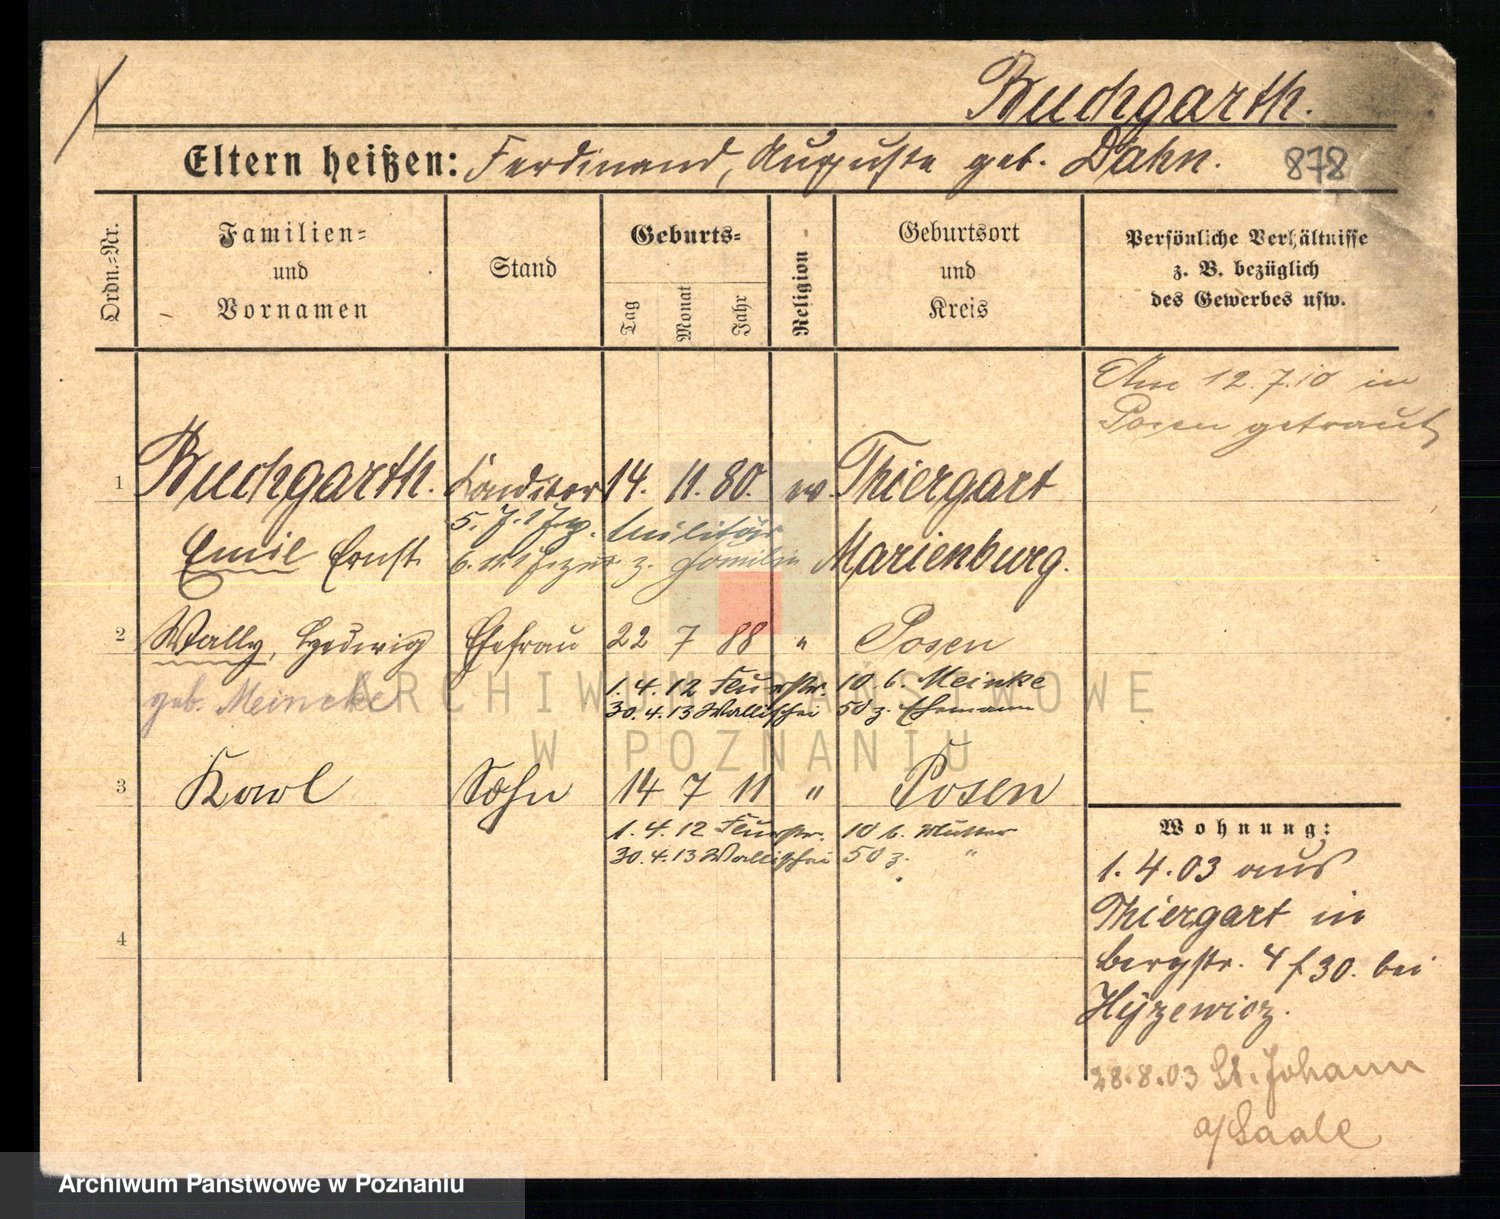 Buchgarth.
Eltern heißen: Ferdinand, Auguste geb. Dahn. 878
Ordn.-Nr.
Familien-
und
Vornamen
Stand
Geburts-
Tag
Monat
Jahr
Religion
Geburtsort
und
Kreis
Persönliche Verhältnisse
z. B. bezüglich
des Gewerbes usw.
Am 12.7.10 in
Posen getraut
1 Buchgarth. Konditor 14. 11. 80. ev. Thiergart
Emil Ernst Marienburg.
Militär
z. Familie
2 Wally, Hedwig Ehefrau 22 7 88 " Posen
geb. Meincke
1.4.12 Flurstr. 10 b. Meinke
30.4.13 Wallischei 50 z. Ehemann
3 Karl Sohn 14 7 11 " Posen
1.4.12 Flurstr. 10 b. Mutter
30.4.13 Wallischei 50 z. "
4
Wohnung:
1.4.03 aus
Thiergart in
Bergstr. 4 f 30. bei
Hyzewicz.
28.8.03 St. Johann
a/Saale
ARCHIWUM PAŃSTWOWE
W POZNANIU
Archiwum Państwowe w Poznaniu